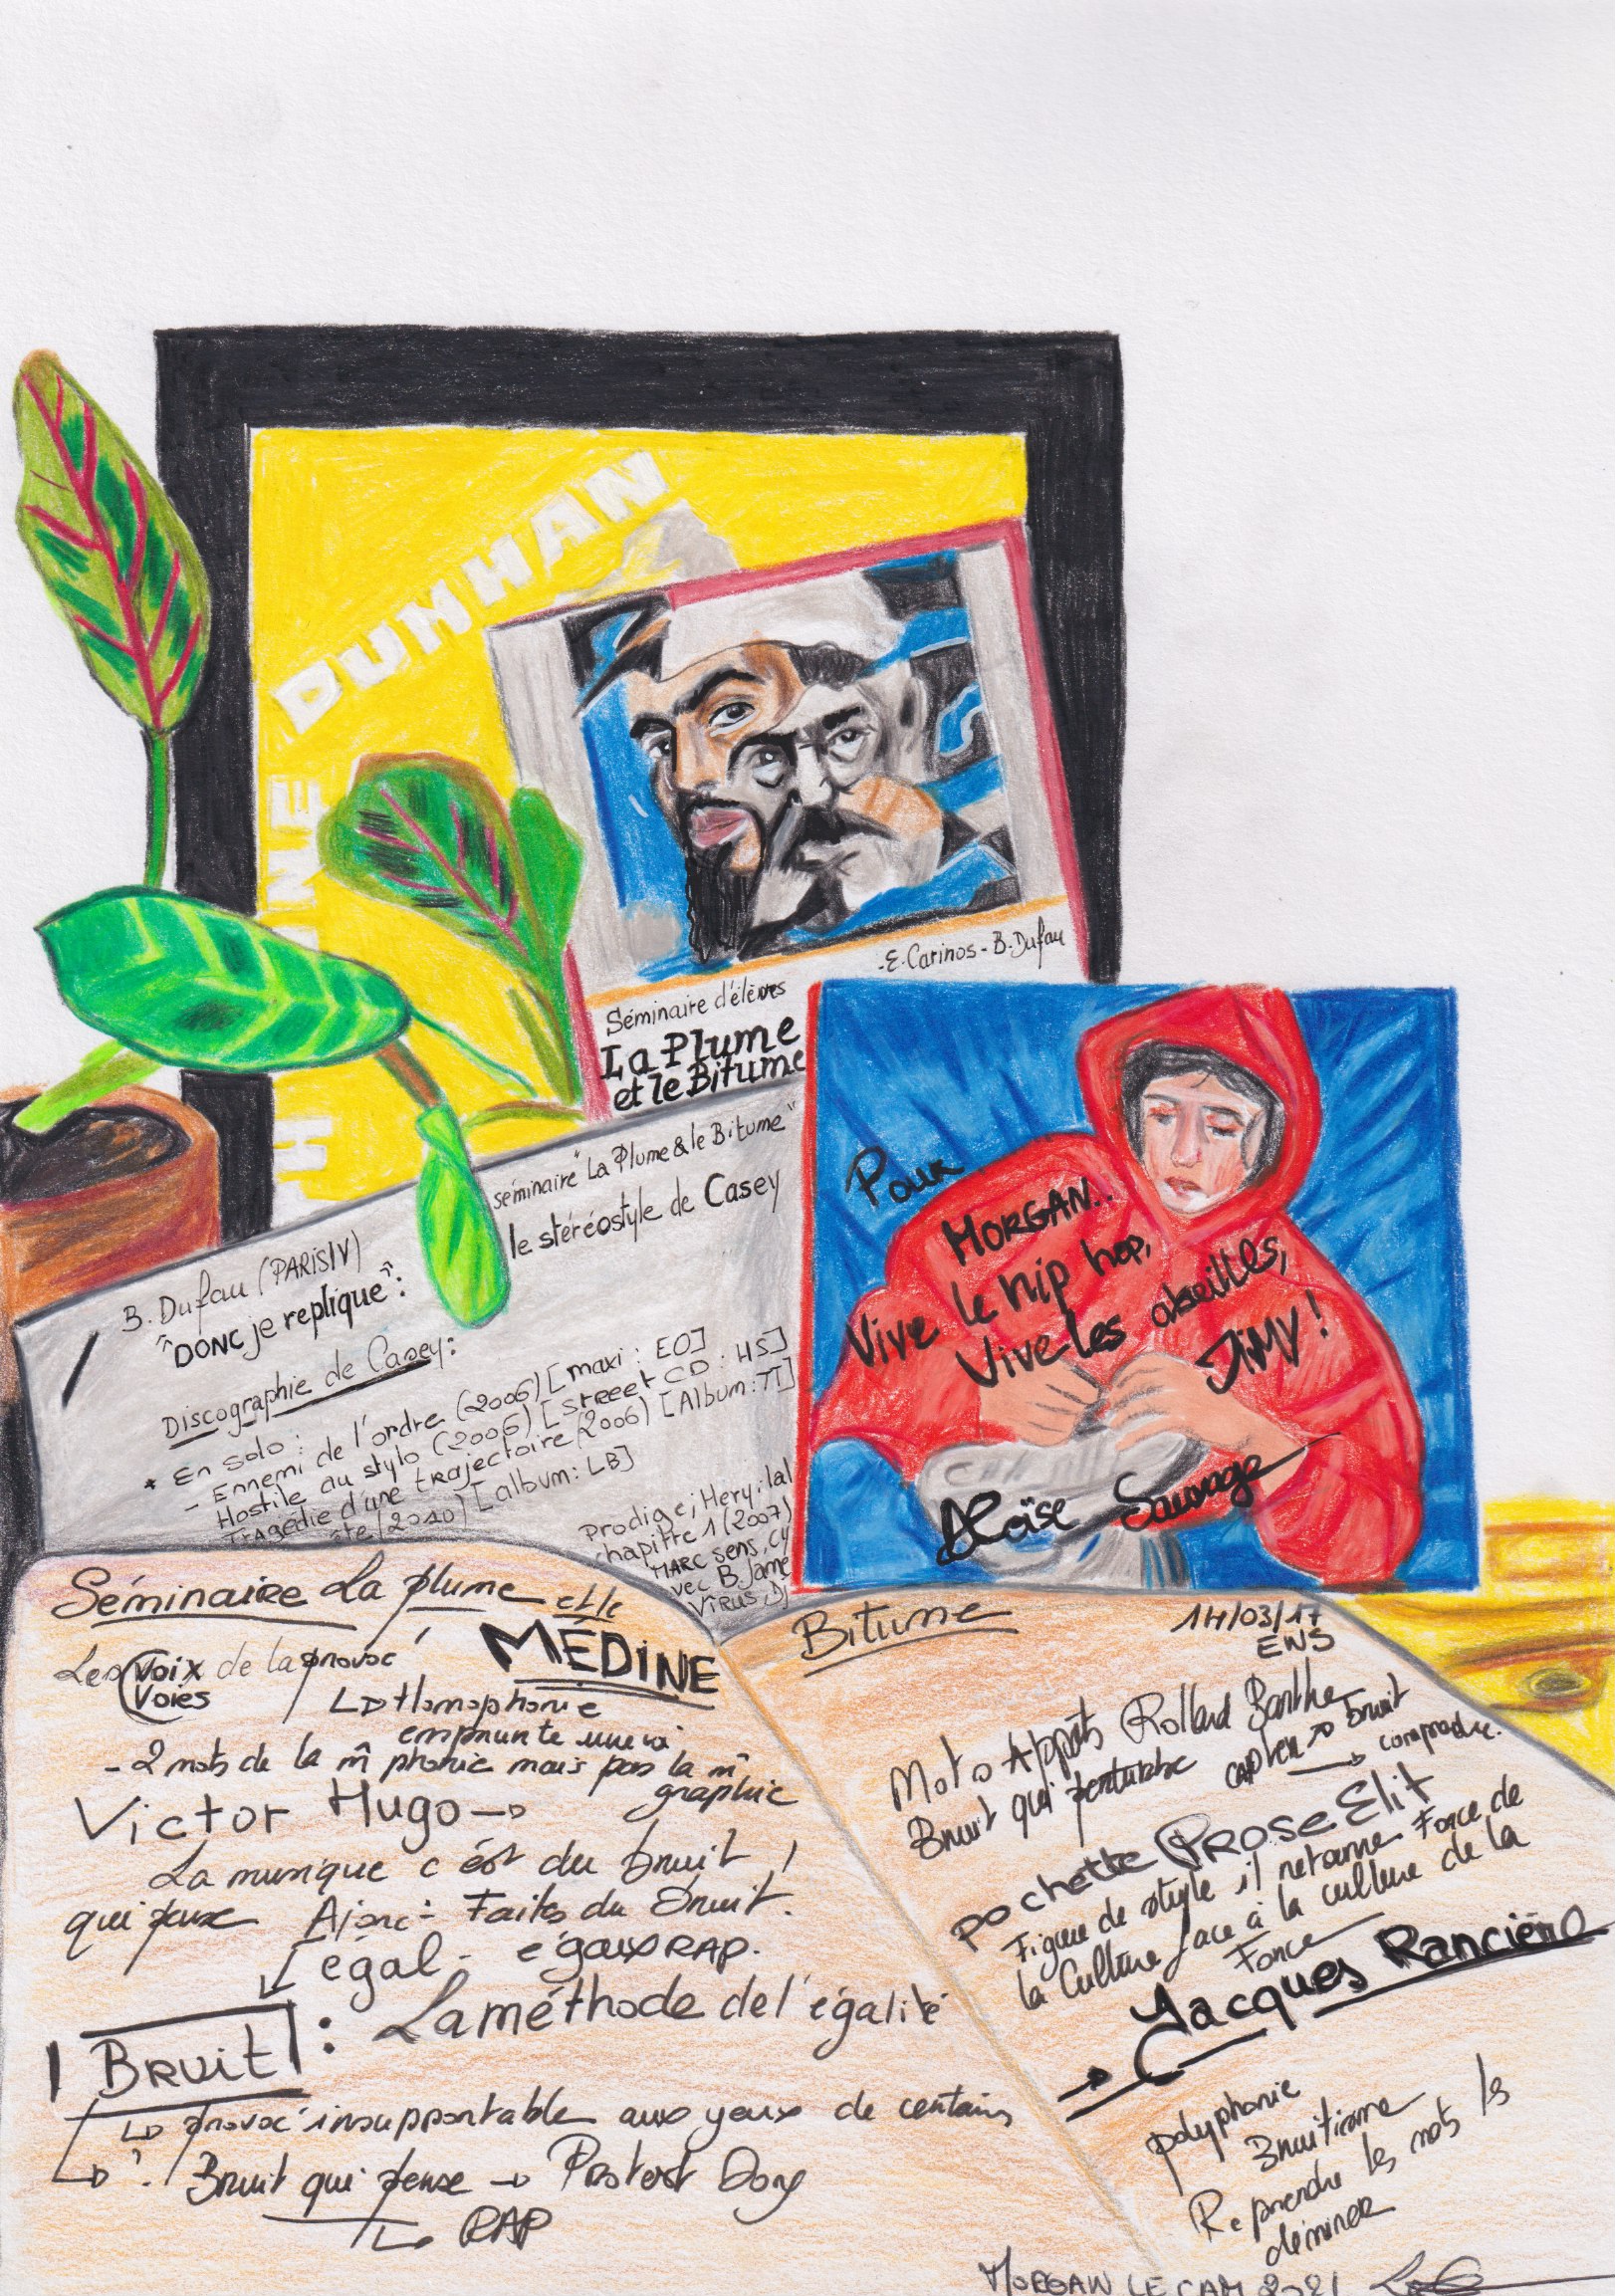 DUNHAN
H
NE
-E.Carinos-B.Dufau
Séminaire d'élèves
La Plume
et le Bitume
séminaire "La Plume & le Bitume"
le stéréostyle de Casey
B. Dufau (PARIS IV)
"DONC je replique":
Discographie de Casey:
* En solo:
- Ennemi de l'ordre (2006) [maxi : EO]
Hostile au stylo (2006) [Street CD : HS]
Tragédie d'une trajectoire (2006) [Album:TT]
ête (2010) [album: LB]
Prodige; Hery; lal
chapitre 1 (2007)
MARC sens, cy
vec B. Jame
Virus, Dj
Pour
MORGAN..
Vive le hip hop,
Vive les abeilles,
JiMY!
Aloïse Sauvage
Séminaire La plume et le
MÉDINE
Les Voix de la provoc'
Voies
L> Homophonie
emprunte une
- 2 mots de la m̂ phonie mais pas la m̂
graphie
Victor Hugo →
La musique c'est du bruit
qui pense
Faites du Bruit.
égal - égaux RAP.
Bruit : La méthode de l'égalité
↳ provoc' insupportable aux yeux de certains
Bruit qui pense → Protest Song
↳ RAP
Bitume
14/03/17
ENS
Mots Appâts Rolland Barthe
Bruit qui perturbe capter → bruit
→ comprendre.
pochette PROSE Elit
Figure de style il retourne Force de
la Culture face à la culture de la
Force
→ Jacques Rancière
polyphonie
Bruitisme
Reprendre les mots les
déminer
MORGAN LE CAM 2021